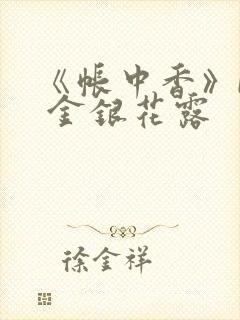 《帐中香》
金银花露
徐金祥